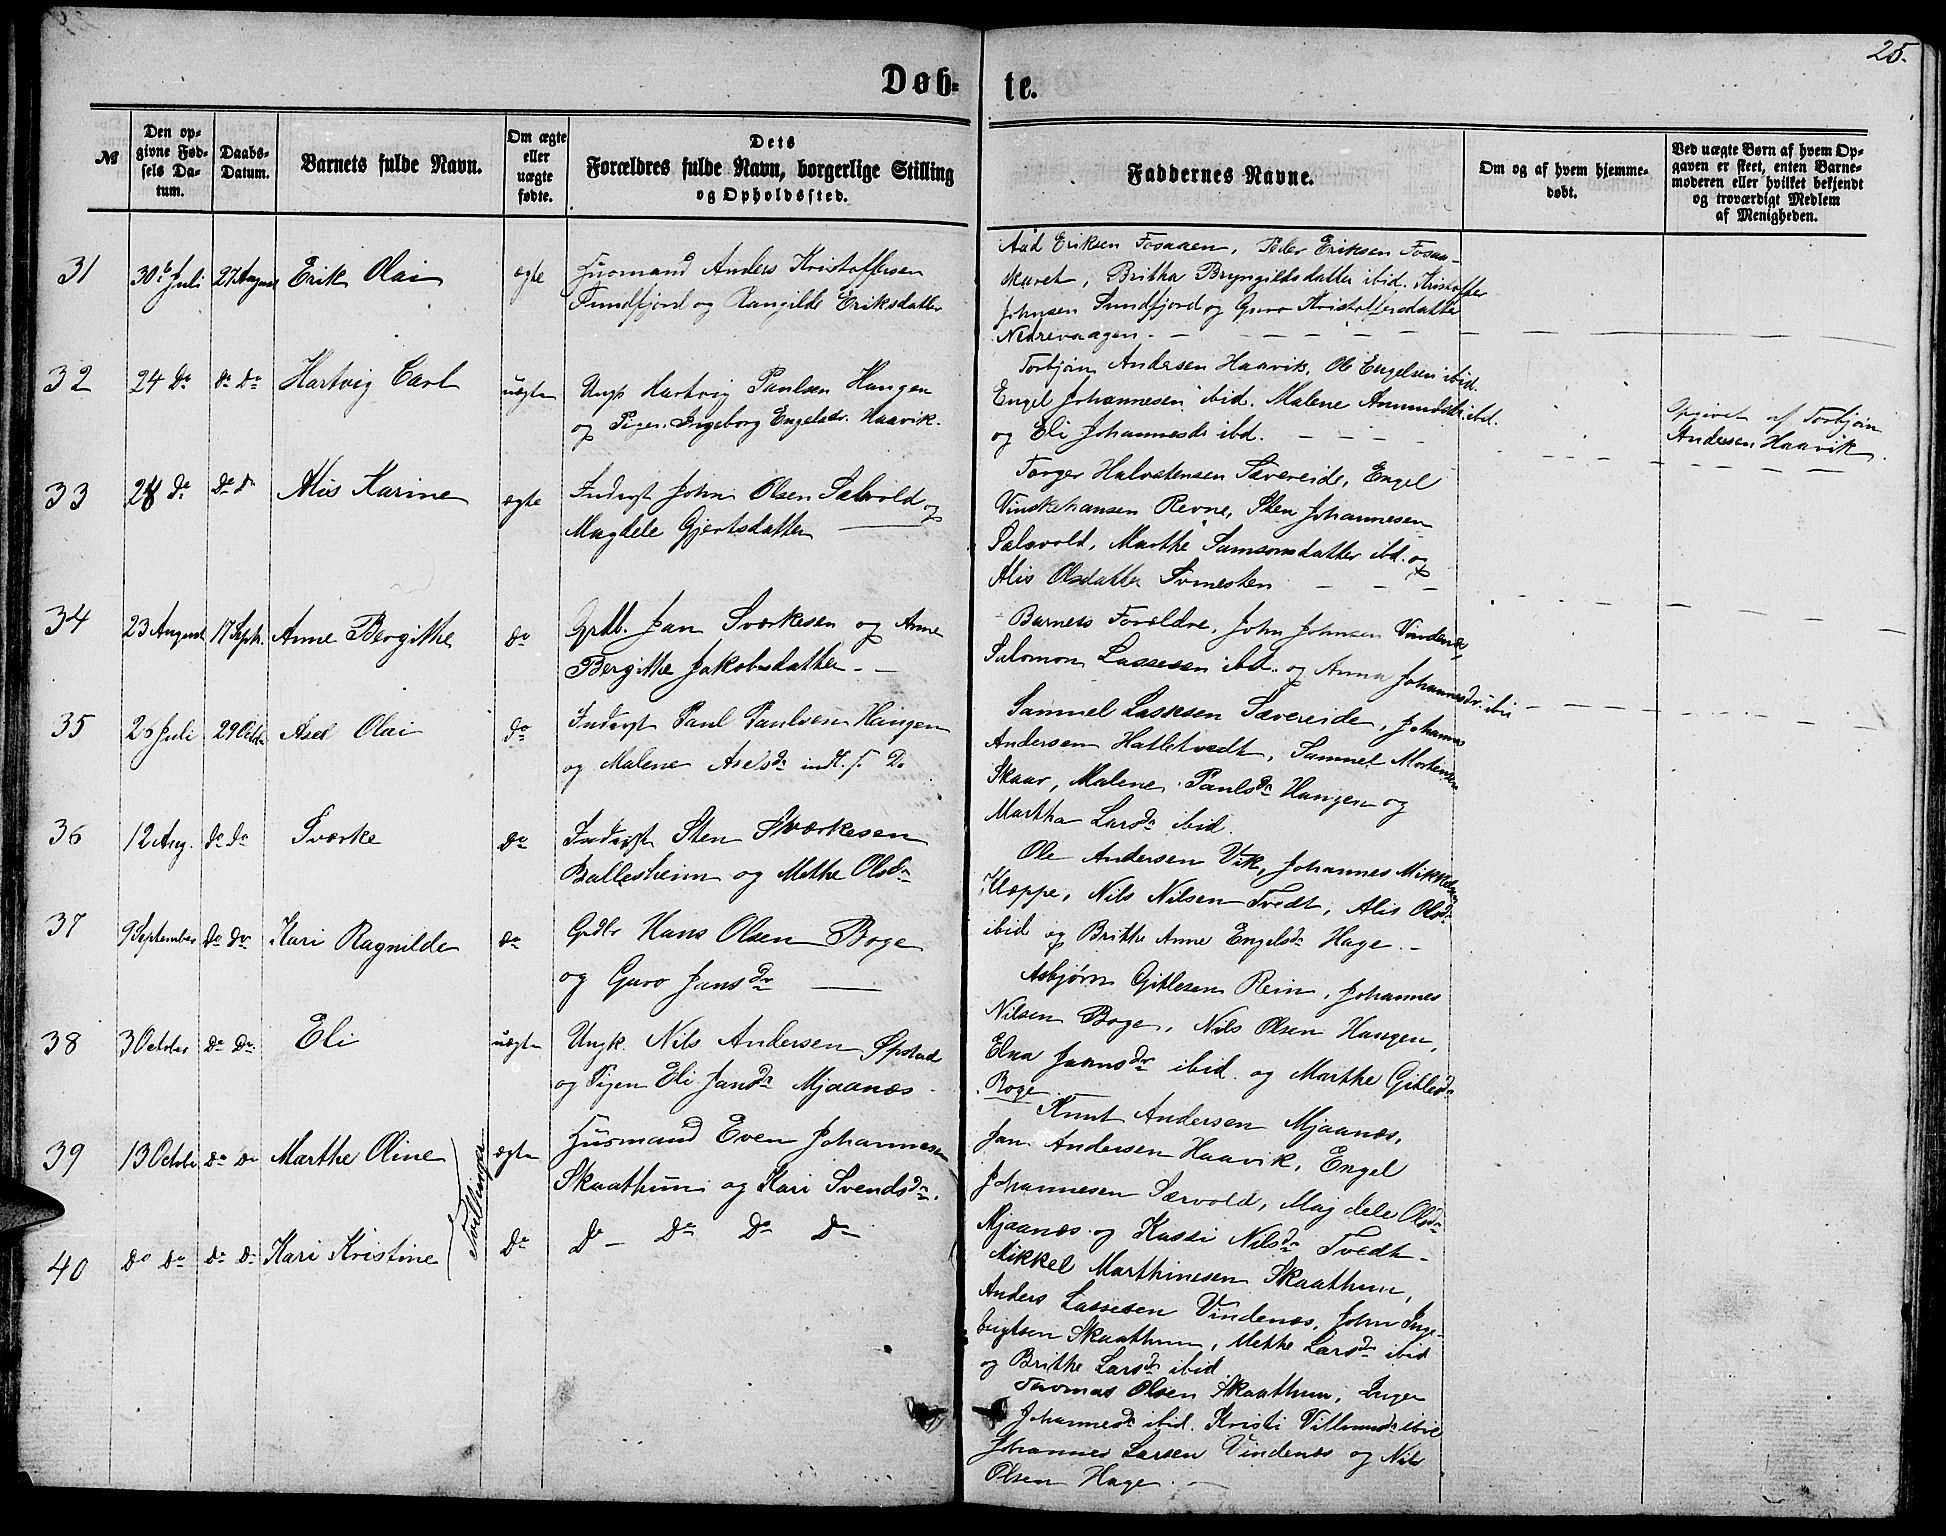 25.
Døb=
te.
№
Den op=
givne Fød=
sels Da=
tum.
Daabs=
Datum.
Barnets fulde Navn.
Om ægte
eller
uægte
fødte.
Dets
Forældres fulde Navn, borgerlige Stilling
og Opholdssted.
Faddernes Navne.
Om og af hvem hjemme=
døbt.
Ved uægte Børn af hvem Op=
gaven er skeet, enten Barne=
moderen eller hvilket bekjendt
og troværdigt Medlem
af Menigheden.
31 30te Juli 27 August Erik Olai ægte Husmand Anders Kristoffersen
Sundfjord og Rangilde Eriksdatter
Aad Eriksen Fosaaen, Peder Eriksen Fosaa-
skaret, Britha Bryngildsdatter ibid. Kristoffer
Johnsen Sundfjord og Guro Kristoffersdatter
Nedrevaagen. -
32 24 do do do Hartvig Carl uægte Ungk Hartvig Paulsen Haugen
og Pigen Ingeborg Engelsdr. Haavik.
Torbjørn Andersen Haavik, Ole Engelsen ibid.
Engel Johannesen ibid. Malene Amundsdtr. ibd.
og Eli Johannesdr ibd.
Opgivet af Torbjørn
Andersen Haavik.
33 28 do do do Alis Karine ægte Inderst John Olsen Salvold og
Magdele Gjertsdatter
Torger Halvatensen Sævereide, Engel
Johannesen
Salvold, Marthe Samsonsdatter ibd. og
Alis Olsdatter
34 23 August 17 Septr. Anne Bergithe do Grdb. Jan Sværkesen og Anne
Bergithe Jakobsdatter -
Barnets Forældre, John Johnsen Vindenæs
Salomon Lassesen ibd. og Anna Johannesdr. ibid
35 26 Juli 29 Octbr Asel Olai do Inderst Paul Paulsen Haugen
og Malene Aselsdr
Samuel Lassesen Sævereide, Johannes
Andersen Hatletvedt, Samuel Mortensen
Skaar, Malene Paulsdr Haugen og
Martha Larsdr ibid.
36 12 Aug. do do Sværke do Inderst Sten Sværkesen
Ballesheim og Methe Olsdr
Ole Andersen Vik, Johannes Mikkelsen
Klæppe, Nils Nilsen Tvedt, Alis Olsdr
ibid og Brithe Anne Engelsdr Hage. -
37 9 September do do Kari Ragnilde do Grdbr Hans Olsen Boge
og Guro Jansdr
Asbjørn Gitlesen Rein, Johannes
Nilsen Boge, Nils Olsen Haugen,
Elna Jaansdr ibid. og Marthe Gitlesdr
Boge
38 3 October do do Eli uægte Ungk. Nils Andersen Opstad
og Pigen Eli Jansdr Mjaanæs
Knut Andersen Mjaanæs,
Jan Andersen Haavik, Engel
Johannesen Særvold, Magdele Olsdr
Mjaanæs og Kassi Nilsdr Tvedt -
39 13 Octobr do do Marthe Oline ægte Husmand Even Johannesen
Skaathun og Kari Svendsdr.
Tvillinger
Mikkel Marthinesen Skaathun,
Anders Lassesen Vindenæs, John Inge-
brigtsen Skaathun, Methe Larsdr ibid
og Brithe Larsdr ibid
40 do do do do Kari Kristine do do do do do
Thomas Olsen Skaathun, Inger
Johannesdr ibid. Kristi Villumsdr ibid
Johannes Larsen Vindenæs og Nils
Olsen Hage